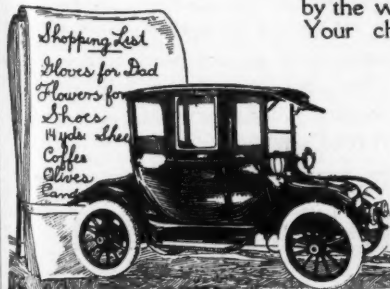 by the w
Your ch
Shopping List
Gloves for Dad
Flowers for
Shoes
14 yds. Shee
Coffee
Olives
Cand